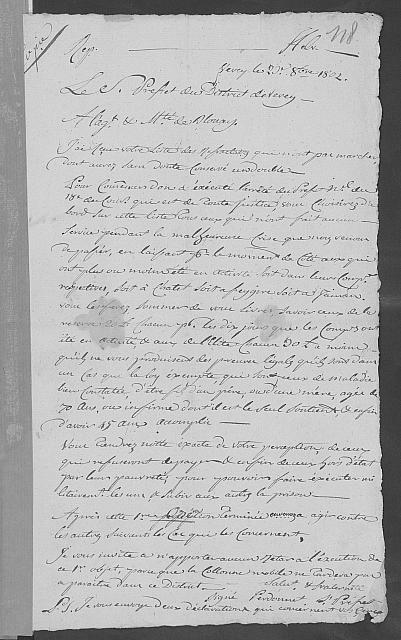 118
Rep. Helv.
Vevey le 20e 8bre 1802.
Le S. Prefet du District de Vevey
A l'agt. & Mté de Blonay
J'ai reçu votre Liste des qui n'ont pas marché,
dont aurez sans doute Conservé un double.
Pour Commencer donc d'exécuter l'arrêté du Préf. Nal. du
18e du Cours qui est de toute justice, vous
bord sur cette liste tous ceux qui n'ont fait aucun
Service pendant la malheureuse Crise que nous venons
de passer, en laissant pr. le moment de Coté ceux qui
ont plus ou moins été en activité soit dans leurs Compes.
respectives, soit à Chatel soit à soit à
vous les ferez Sommer de vous livrer, Savoir ceux de la
reserve 20 L Chacun pr. les dix jours que les Comps. ont
été en activité & ceux de l'Elite Chacun 30 L à moins
qu'ils ne vous produisent des preuves legales qu'ils sont dans
un Cas que la loy exempte, que sont ceux de maladie
bien Constatée d'être fils d'un père, ou d'une mère, agés de
70 Ans, ou infirme dont il est le Seul Soutient & enfin
d'avoir 45 ans accomplis
Vous tiendrez notte exacte de votre perception, de ceux
qui refuseront de payer & enfin de ceux hors d'état
par leur pauvreté, pour pouvoir faire exécuter mi
litairemt. les uns & Subir aux autres la prison.
Après cette 1re opération terminée on verra à agir contre
les autres suivant les Cas qui les Concernent,
Je vous invite à n'apporter aucun retard à l'exécution de
ce 1r objet, parce que la Collonne mobile ne tardera pas
a paraitre dans ce District. Salut & fraternité
Signé Perdonnet S. Préfet
P.S. Je vous envoye deux déclarations qui concernent